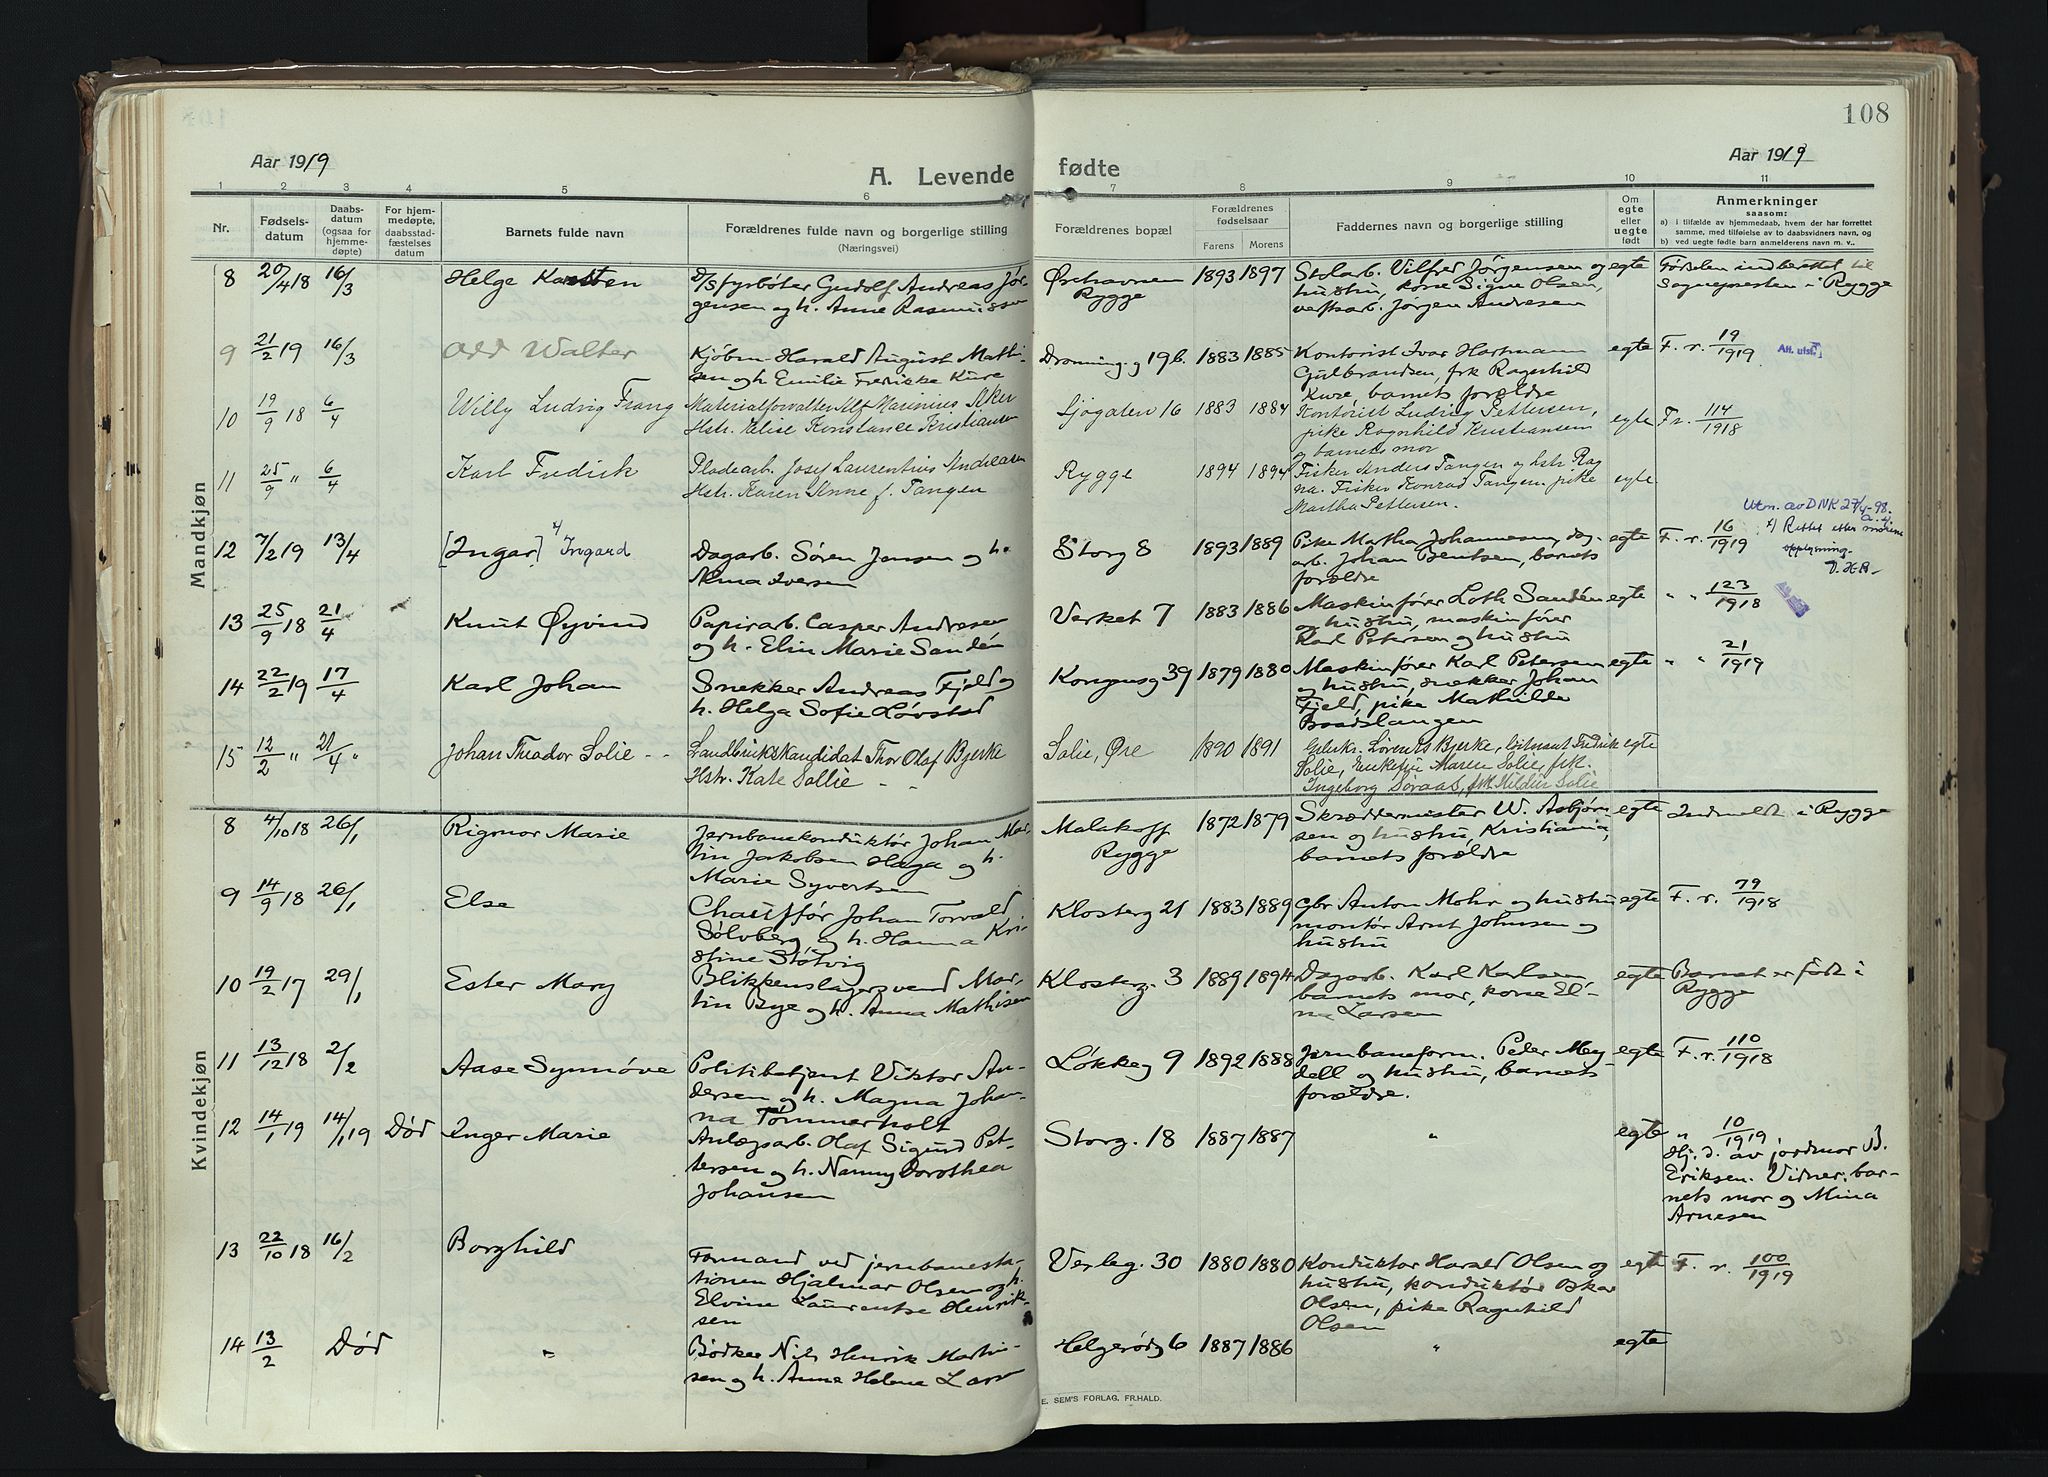 108
Aar 1919
A. Levende
fødte
Aar 1919
1 2 3 4 5 6 7 8 9 10 11
Nr.
Fødsels-
datum
Daabs-
datum
(ogsaa for
hjemme-
døpte)
For hjem-
medøpte,
daabsstad-
fæstelses
datum
Barnets fulde navn
Forældrenes fulde navn og borgerlige stilling
(Næringsvei)
Forældrenes bopæl
Forældrenes
fødselsaar
Farens Morens
Faddernes navn og borgerlige stilling
Om
egte
eller
uegte
født
Anmerkninger
saasom:
a) i tilfælde av hjemmedaab, hvem der har forrettet
samme, med tilføielse av to daabsvidners navn, og
b) ved uegte fødte barn anmelderens navn m. v..
Mandkjøn
8 20/4 18 16/3 Helge Karsten
D/S fyrbøter Gudolf Andreas Jør-
gensen og h. Anne Rasmussen
Ørehavnen
Rygge
1893 1897
Stolarb. Vilfred Jørgensen og
hustru, kone Signe Olsen,
verftsarb. Jørgen Andresen
egte
Fødselen indberettet til
Sognepresten i Rygge
9 21/2 19 16/3 Odd Walter
Kjøbm. Harald August Mathi-
sen og h. Emilie Fredrikke Kure
Dronning.g 19b. 1883 1885
Kontorist Ivar Hartmann
Gulbrandsen, frk Ragnhild
Kure, barnets forældre
egte F. r. 19/1919
Att. utst.
10 19/9 18 6/4 Willy Ludvig Frang
Materialforvalter Alf Marinius Aker
Hstr. Elise Konstance Kristiansen
Sjøgaten 16 1883 1884
Kontorist Ludvig Pettersen,
pike Ragnhild Kristiansen
og barnets mor
egte Fr. 114/1918
11 25/9 " 6/4 Karl Fredrik
Pladearb. Josef Laurentius Andreasen
Hstr. Karen Anne f. Tangen
Rygge 1894 1894
Fisker Anders Tangen og hstr. Rag
na. Fisker Konrad Tangen, pike
Martha Pettersen.
egte
12 7/2 19 13/4 [Ingar] x) Ingard
Dagarb. Søren Jensen og h.
Alma Iversen
Storg 8 1893 1889
Pike Martha Johannesen, dag-
arb. Johan Bentsen, barnets
forældre
egte F. r. 16/1919
Utm. av DNK 27/4-98.
x) Rettet etter morens
opplysning.
13 25/9 18 21/4 Knut Øyvind
Papirarb. Casper Andresen
og h. Elin Marie Sandén
Verket 7 1883 1886
Maskinfører Loth Sandén
og hustru, maskinfører
Karl Petersen og hustru
egte " " 123/1918
14 22/2 19 17/4 Karl Johan
Snekker Andreas Fjeld og
h. Helga Sofie Løvstad
Kongensg 39 1879 1880
Maskinfører Karl Petersen
og hustru, snekker Johan
Fjeld, pike Mathilde
Braadslangen
egte " " 21/1919
15 12/2 " 21/4 " Johan Theodor Solie - -
Landbrukskandidat Thor Olaf Bjerke
Hstr. Kate Sollie - -
Solie, Øre 1890 1891
Lørents Bjerke, løitnant Fredrik
Solie, Enkefru Maren Solie, frk.
Ingeborg Soraas, frk Hildur Solie
egte
Kvindekjøn
8 4/10 18 26/1 Rigmor Marie
Jernbanekonduktør Johan Mar-
tin Jakobsen Haga og h.
Marie Syvertsen
Malakoff
Rygge
1872 1879
Skræddermester W. Asbjørn
sen og hustru, Kristiania,
barnets forældre
egte Indmeldt i Rygge
9 14/9 18 26/1 Else
Chauffør Johan Torvald
Sølvberg og h. Hanna Kri-
stine Støtvig
Klosterg 21 1883 1889
Gbr Anton Mohr og hustru
montør Arnt Johnsen og
hustru
egte F. r. 79/1918
10 19/2 17 29/1 Ester Mary
Blikkenslagersvend Mar-
tin Bye og h. Anna Mathisen
Klosterg. 3 1889 1894
Dagarb. Karl Karlsen
barnets mor, kone El-
na Larsen
egte Barnet er født i
Rygge
11 13/12 18 2/2 Aase Synnøve
Politibetjent Viktor An-
dersen og h. Magna Johan-
na Tømmerholt
Løkkeg 9 1892 1888
Jernbaneform. Peder Mey
dell og hustru, barnets
forældre.
egte F. r. 110/1918
12 14/1 19 14/1 19 Død Inger Marie
Anlægsarb. Olaf Sigurd Pet-
tersen og h. Nanny Dorothea
Johansen
Storg. 18 1887 1887 " egte " 10/1919
Hj. d. av jordmor B.
Eriksen. Vidner: bar-
nets mor og Mina
Arnesen
13 22/10 18 16/2 Borghild
Formand ved jernbanesta-
tionen Hjalmar Olsen og h.
Elvine Laurentse Henrik-
sen
Verleg. 30 1880 1880
Konduktør Harald Olsen og
hustru, konduktør Oskar
Olsen, pike Ragnhild
Olsen
egte F. r. 100/1919
14 13/2 Død "
Bødker Nils Henrik Martin-
sen og h. Anne Helene Larsen
Helgerødg 6 1887 1886 " egte
E. SEM'S FORLAG, FR.HALD.